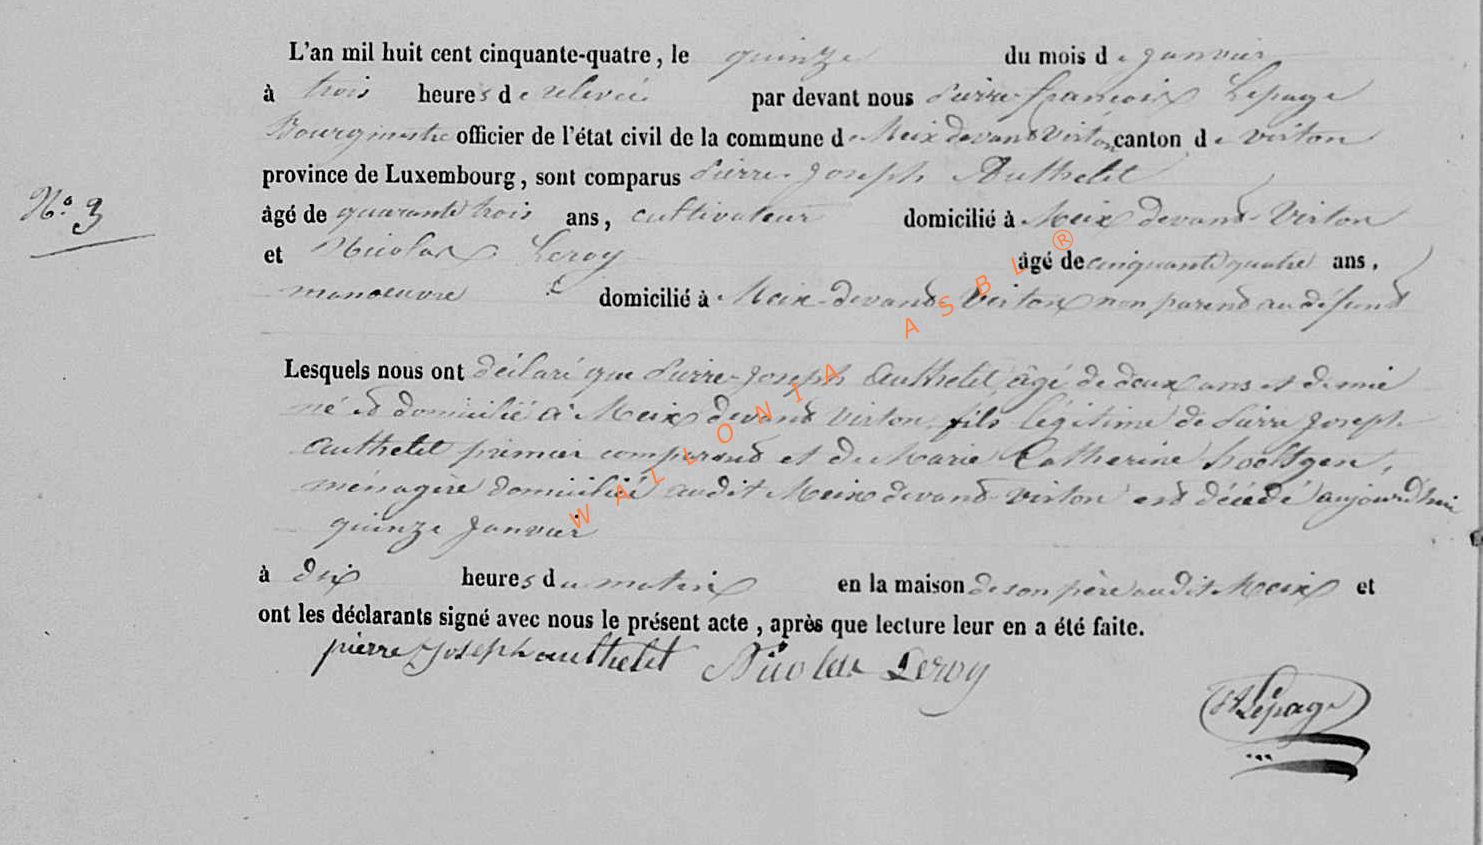 L'an mil huit cent cinquante-quatre, le quinze du mois de janvier
à trois heures de relevée par devant nous Pierre françois Lepage
Bourgmestre officier de l'état civil de la commune de Meix devant Virton canton de virton
province de Luxembourg, sont comparus Pierre-Joseph Authelet
N.° 3
âgé de quarante trois ans, cultivateur domicilié à Meix devant-Virton
et Nicolas Leroy âgé de cinquante quatre ans,
manoeuvre domicilié à Meix-devant Virton non parent au défunt
Lesquels nous ont déclaré que Pierre-Joseph Authelet, âgé de deux ans et demie
né et domicilié à Meix devant Virton, fils légitime de Pierre Joseph
Authelet premier comparant et de Marie Catherine,
ménagère domiciliée audit Meix devant-virton est décédé aujourd'hui
quinze Janvier
à dix heures du matin en la maison de son père audit Meix et
ont les déclarants signé avec nous le présent acte, après que lecture leur en a été faite.
pierre Joseph authelet Nicolas Leroy
Lepage
WALLONIA ASBL ®